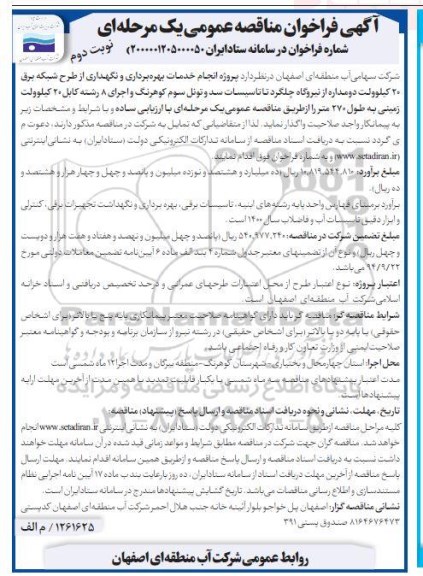 آگهی فراخوان مناقصه عمومی یک مرحله‌ای
نوبت دوم
شماره فراخوان در سامانه ستادایران ۲۰۰۰۰۰۱۲۰۵۰۰۰۰۵۰)
شرکت سهامی آب منطقه‌ای اصفهان درنظر دارد پروژه انجام خدمات بهره‌برداری و نگهداری از طرح شبکه برق
۲۰ کیلوولت دومداره از نیروگاه چلگرد تا تاسیسات سد و تونل سوم کوهرنگ و اجرای ۸ رشته کابل ۲۰ کیلوولت
زمینی به طول ۲۷۰ متر را از طریق مناقصه عمومی یک مرحله‌ای با ارزیابی ساده و با شرایط و مشخصات زیر
به پیمانکار واجد صلاحیت واگذار نماید. لذا از متقاضیانی که تمایل به شرکت در مناقصه مذکور دارند، دعوت م
ی گردد نسبت به دریافت اسناد مناقصه از سامانه تدارکات الکترونیکی دولت (ستادایران) به نشانی اینترنتی
(www.setadiran.ir) و به شماره فراخوان فوق اقدام نمایند.
مبلغ برآورد: ۱۰،۸۱۹،۵۴۴،۸۱۰ ریال (ده میلیارد و هشتصد و نوزده میلیون و پانصد و چهل و چهار هزار و هشتصد و
ده ریال).
برآورد بر مبنای فهارس واحد پایه رشته‌های ابنیه، تاسیسات برقی، بهره برداری و نگهداشت تجهیزات برقی، کنترلی
و ابزار دقیق تاسیسات آب و فاضلاب سال ۱۴۰۰ است.
مبلغ تضمین شرکت در مناقصه: ۵۴۰،۹۷۷،۲۴۰ ریال (پانصد و چهل میلیون و نهصد و هفتاد و هفت هزار و دویست
و چهل ریال) و نوع آن از تضمینهای معتبر جدول شماره ۴ بند الف ماده ۶ آیین نامه تضمین معاملات دولتی مورخ
۹۴/۹/۲۲ می‌باشد.
اعتبار پروژه: نوع اعتبار طرح از محل اعتبارات طرحهای عمرانی و درصد تخصیص دریافتی و اسناد خزانه
اسلامی شرکت آب منطقه‌ای اصفهان است.
شرایط مناقصه گر: مناقصه گر باید دارای گواهینامه صلاحیت معتبر پیمانکاری پایه پنج یا بالاتر (برای اشخاص
حقوقی) یا پایه دو یا بالاتر (برای اشخاص حقیقی) در رشته نیرو از سازمان برنامه و بودجه و گواهینامه معتبر
صلاحیت ایمنی از وزارت تعاون کار و رفاه اجتماعی باشد.
محل اجرا: استان چهارمحال و بختیاری- شهرستان کوهرنگ- منطقه بیرگان و مدت اجرا ۱۲ ماه شمسی است
مدت اعتبار پیشنهادهای مناقصه سه ماه شمسی با یکبار قابلیت تمدید با همین مدت از آخرین مهلت ارایه
پیشنهادها است.
تاریخ، مهلت، نشانی و نحوه دریافت اسناد مناقصه و ارسال پاسخ (پیشنهاد) مناقصه:
کلیه مراحل مناقصه از طریق سامانه تدارکات الکترونیکی دولت (ستادایران) به نشانی اینترنتی www.setadiran.ir انجام
خواهد شد. مناقصه گران جهت شرکت در مناقصه مطابق شرایط و مواعد زمانی قید شده در آن سامانه مهلت خواهند
داشت نسبت به دریافت اسناد مناقصه و ارسال پاسخ مناقصه و از طریق همین سامانه اقدام نمایند. مهلت ارسال
پاسخ مناقصه از آخرین مهلت دریافت اسناد از سامانه ستادایران، ده روز با رعایت بند ب ماده ۱۷ آیین نامه اجرایی نظام
مستندسازی و اطلاع رسانی مناقصات می‌باشد. تاریخ گشایش پیشنهادها مندرج در سامانه ستادایران است.
نشانی مناقصه گزار: اصفهان پل خواجو بلوار آئینه خانه جنب هلال احمر شرکت آب منطقه‌ای اصفهان کدپستی
۸۱۶۴۶۷۶۴۷۳ صندوق پستی ۳۹۱
۱۲۶۱۶۲۵ / م الف
روابط عمومی شرکت آب منطقه‌ای اصفهان